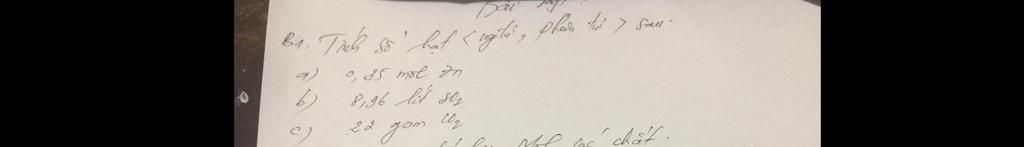 Bài tập
B1. Tính số hạt < ngtử, phân tử > sau.
a) 0,35 mol Zn
b) 8,96 lít SO2
c) 22 gam CO2
Mol các chất.